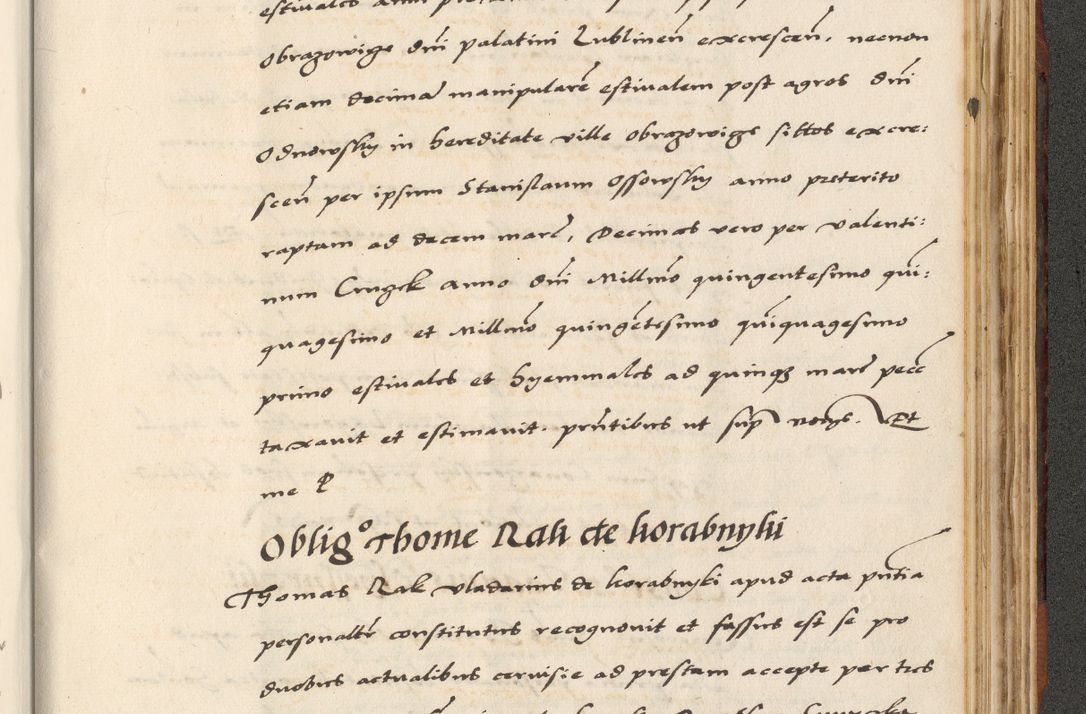 obrazowige dni palatini Lublinen excrescen. necnon
etiam decimā manipularē estivalem post agros dni
Odnowsky in hereditate ville obrazowige sittos excre:
scen per ipsum Stanislaum Ossowsky anno preterito
raptam ad decem marc, Decimas vero per valenti:
num Cruzek anno dni Millmo quingentesimo qui:
quagesimo et Millmo quingētesimo quiquagesimo
primo estivales et hyemmales ad quinqz marc pecc
taxavit et estimavit. pntibus ut sup notys. Et
me P
Obligo Thome Rak de korabnyki
Thomas Rak vladarius de korabnyki apud acta pntia
personaltr constitutus recognovit et fassus est se pro
duobus actualibus cervisie ad prestam accepte per tres